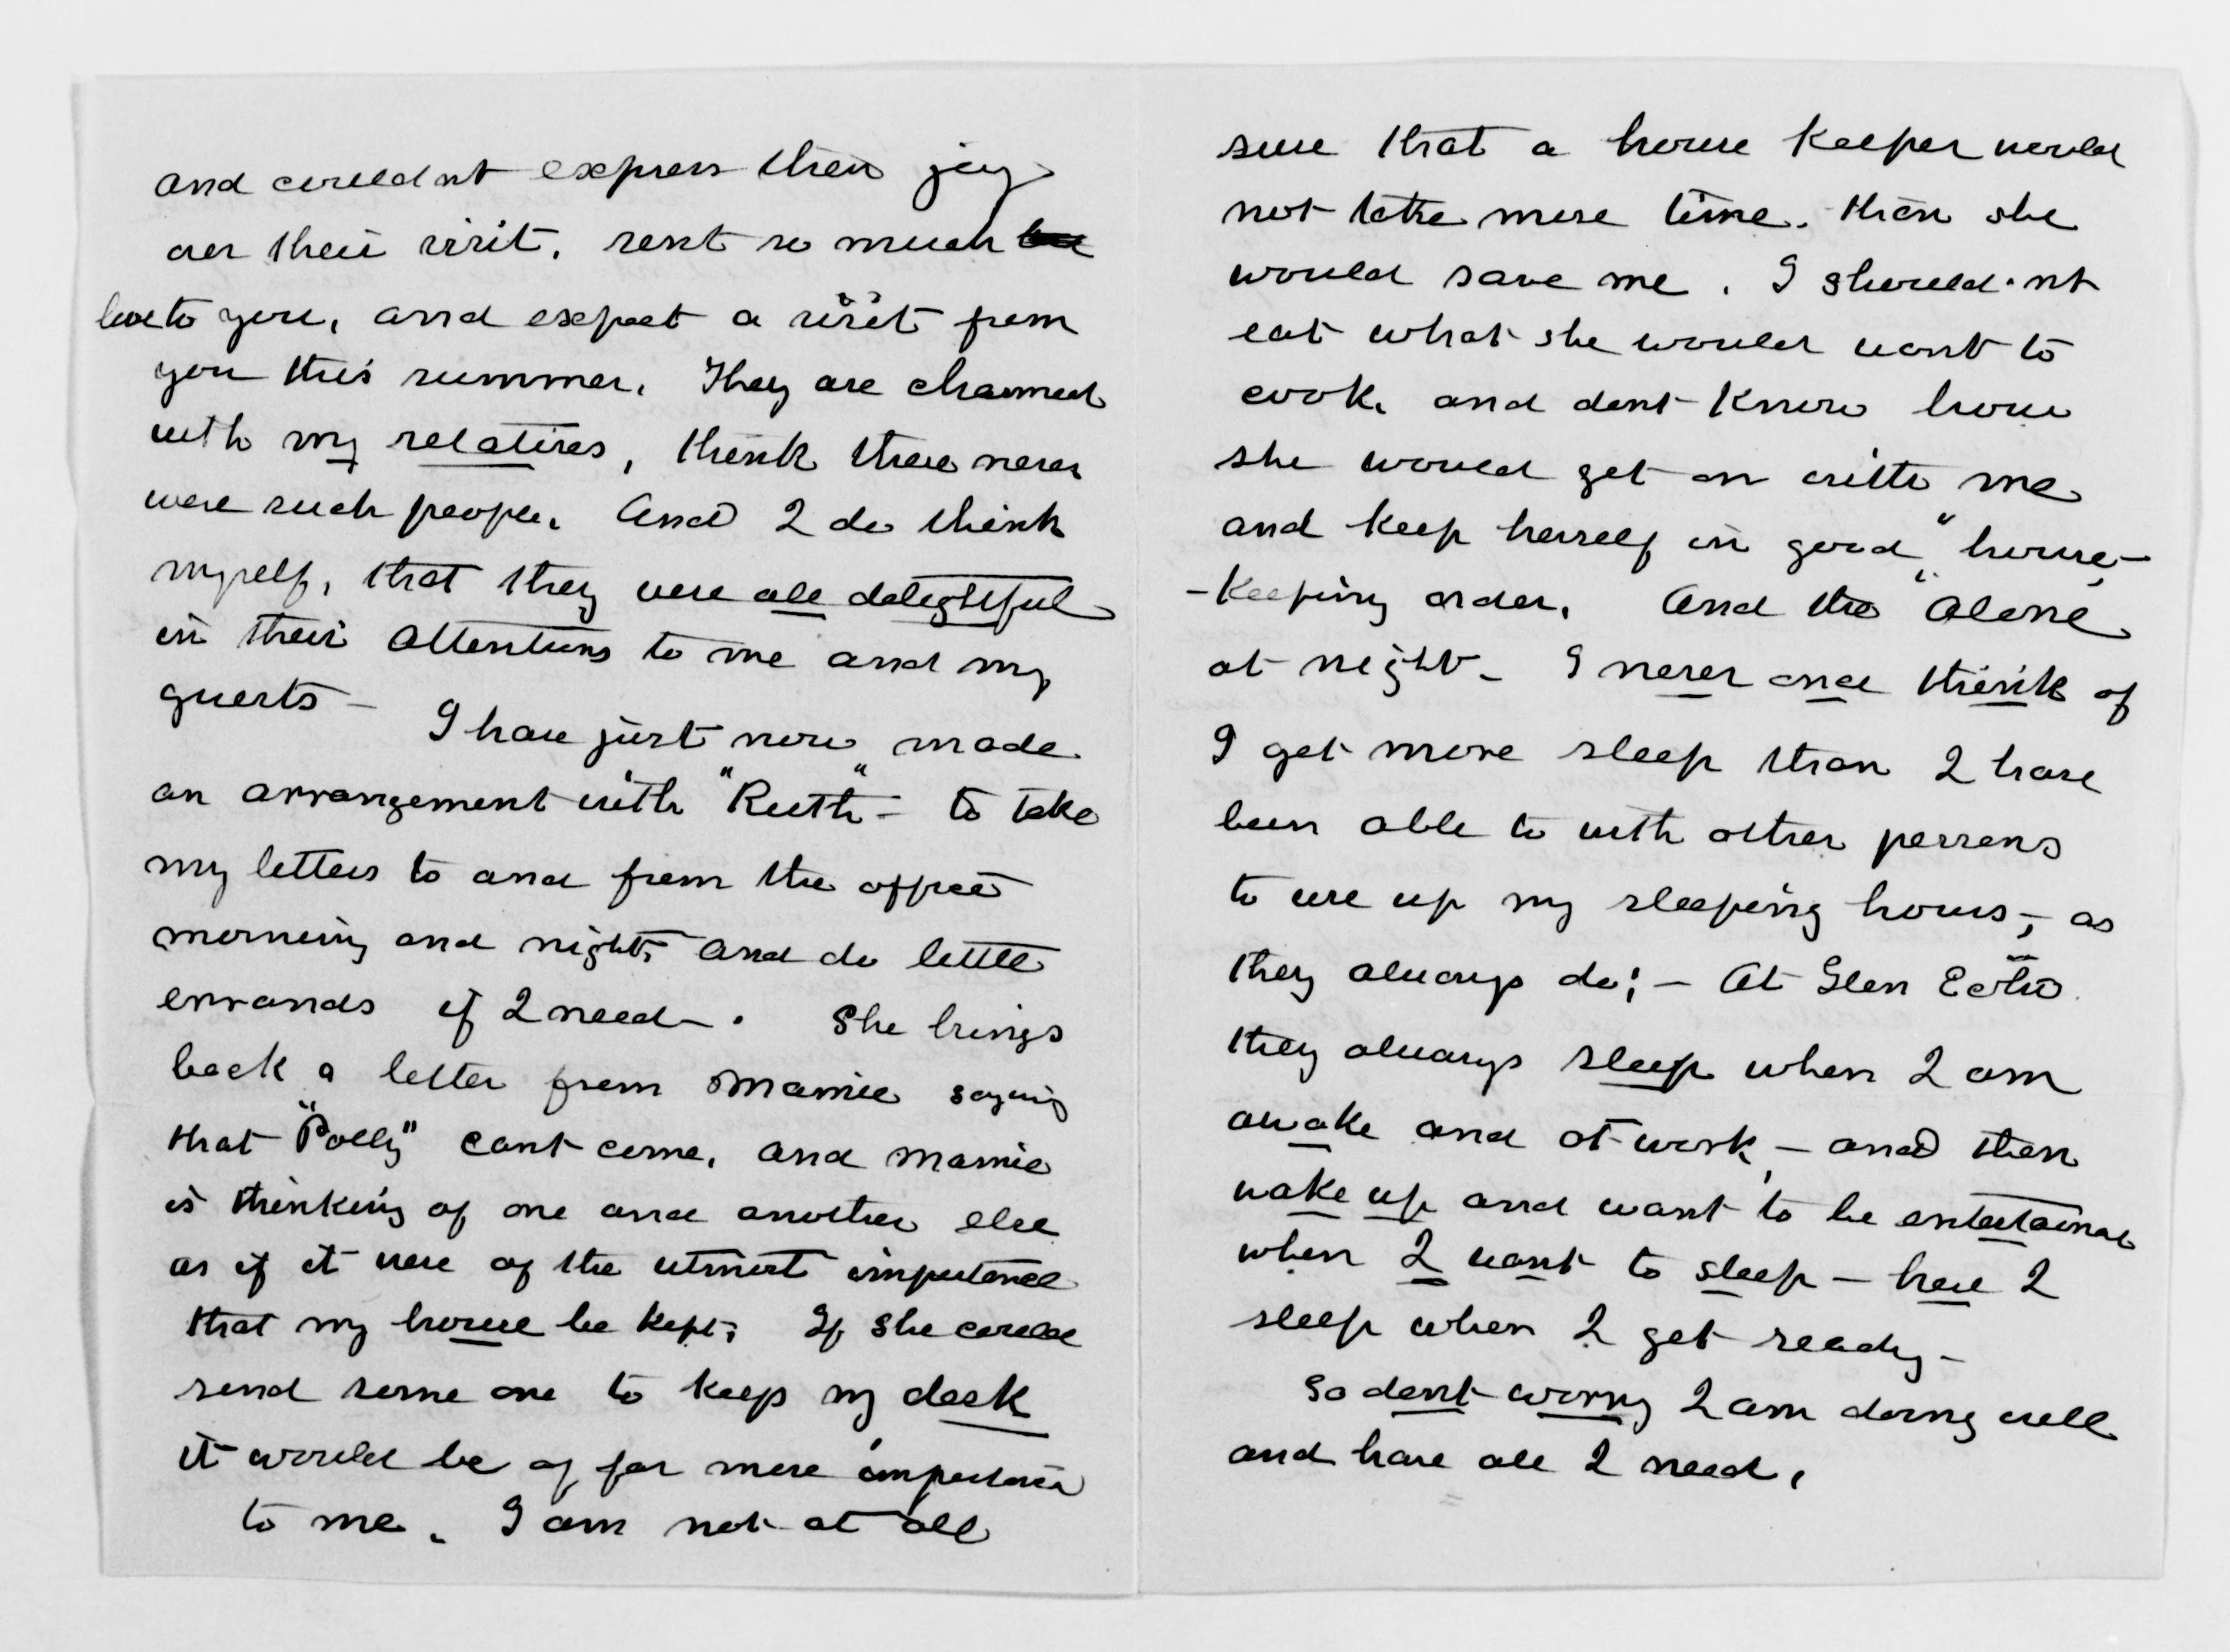 and couldnt express their joy
over their visit, sent so much
love to you, and expect a visit from
you this summer. They are charmed
with my relatives, think there never
were such people. And I do think
myself, that they were all delightful
in their attentions to me and my
guests - I have just now made
an arrangement with "Ruth" - to take
my letters to and from the office
morning and night, and do little
errands if I need - . She brings
back a letter from Mamie saying
that "Polly" cant come, and Mamie
is thinking of one and another else
as if it were of the utmost importance
that my house be kept; If she could
send some one to keep my desk
it would be of far more importance
to me. I am not at all
sure that a house keeper would
not take more time. than she
would save me. I should.nt
eat what she would want to
cook, and dont know how
she would get on with me
and keep herself in good "house-
-keeping" order. And the "alone
at night - I never once think of
I get more sleep than I have
been able to with other persons
to use up my sleeping hours; as
they always do; - At Glen Echo
they always sleep when I am
awake and at work, - and then
wake up and want to be entertained
when I want to sleep - here I
sleep when I get ready -
So dont worry I am doing well
and have all I need.